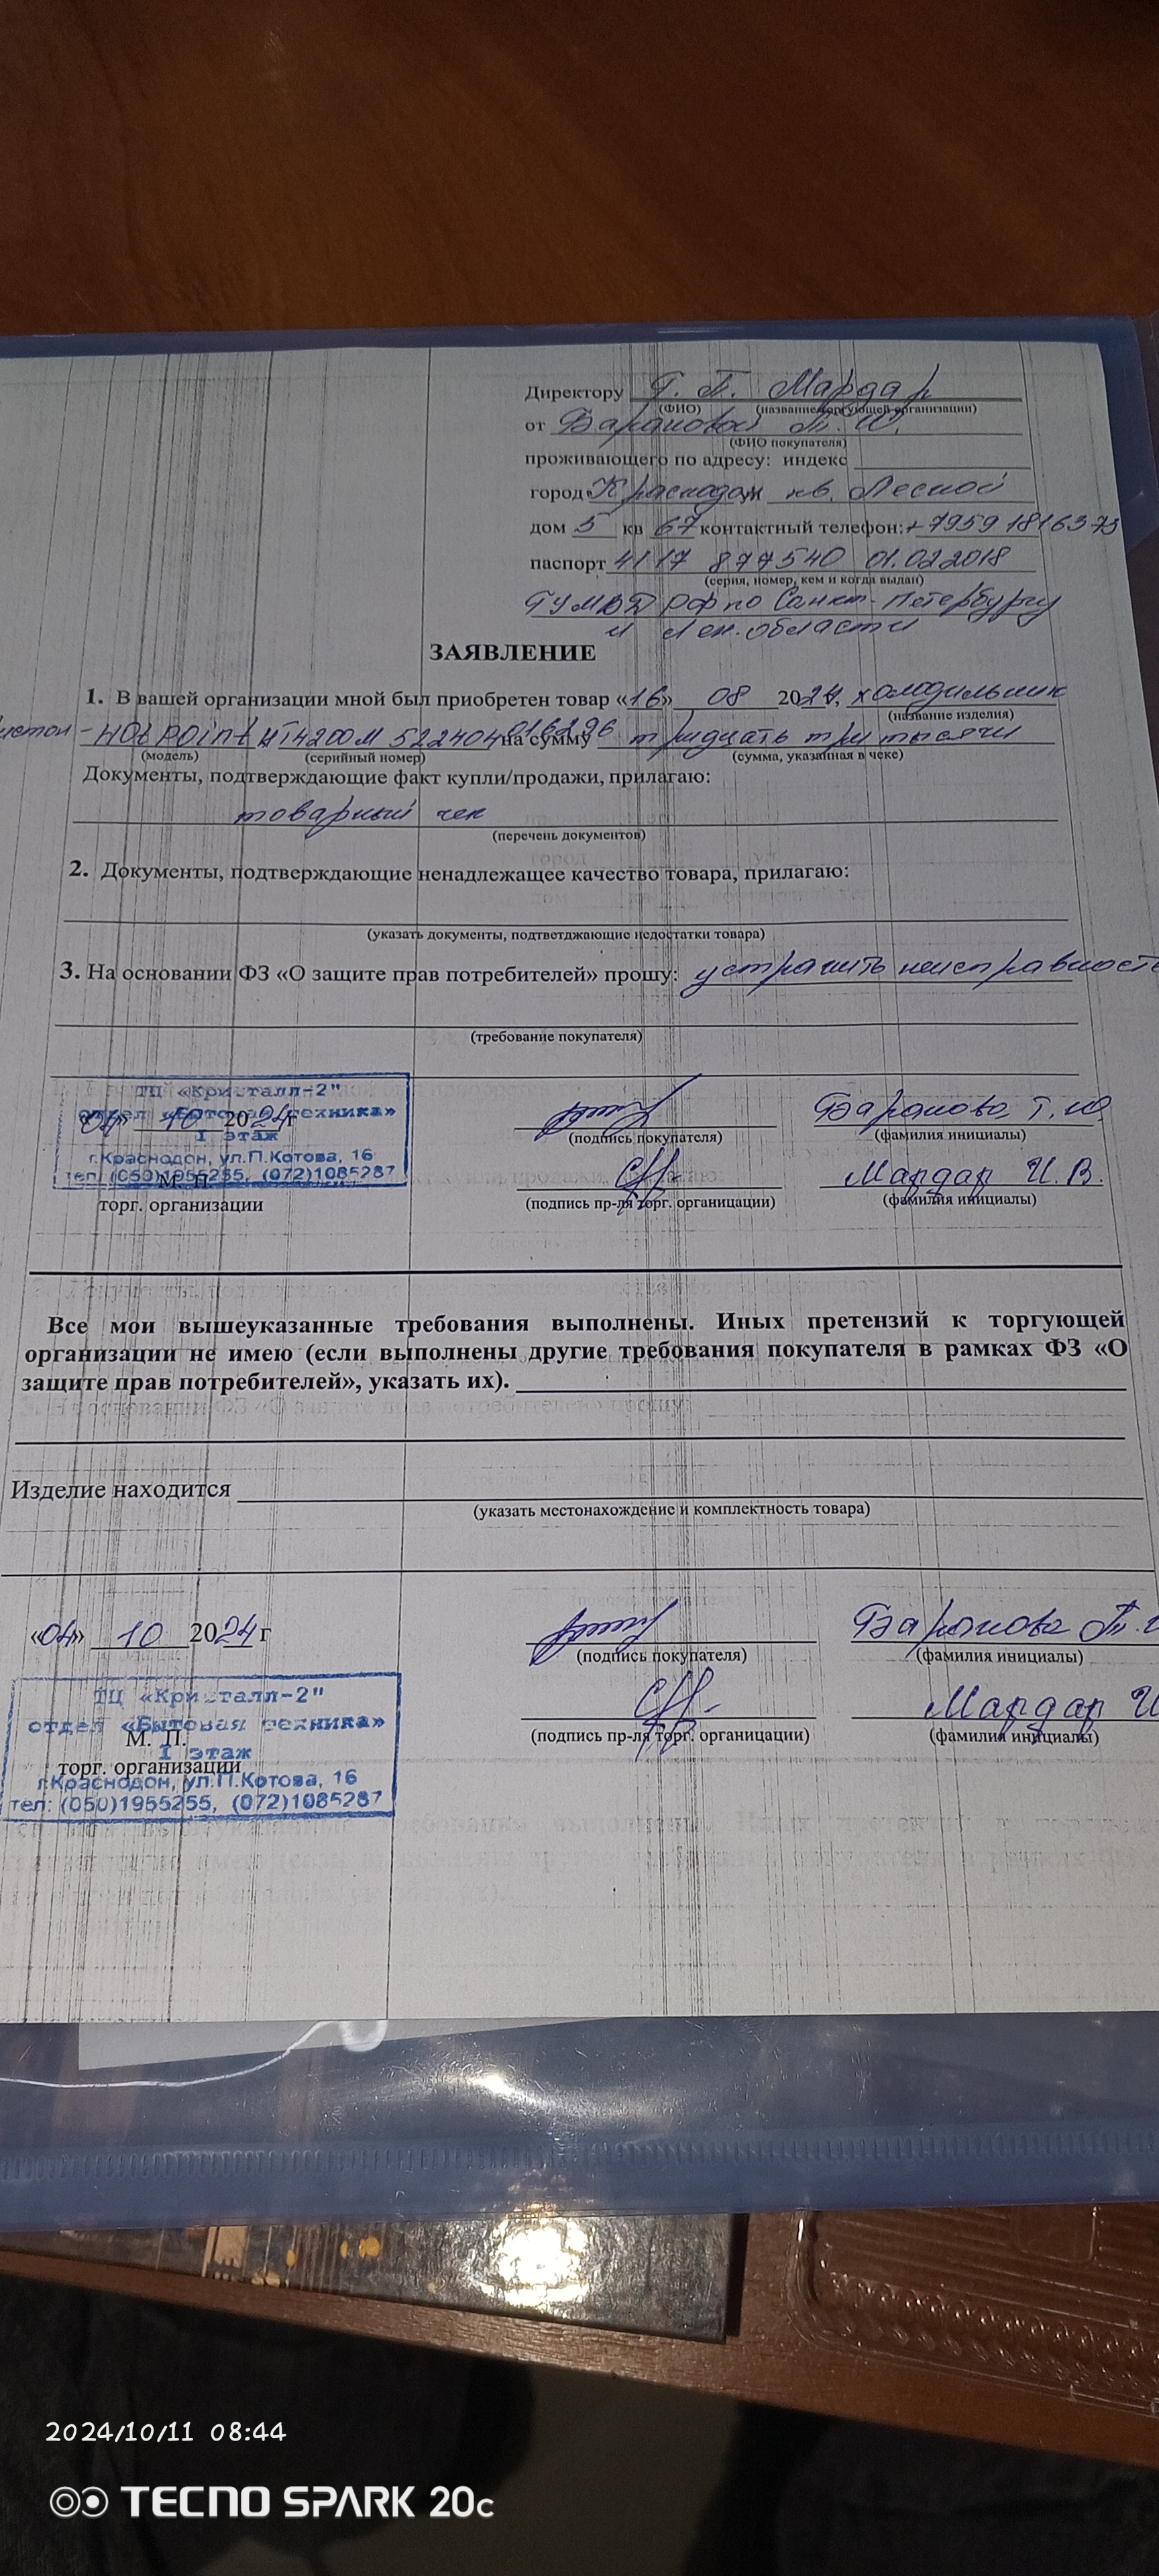 Директору Г. П. Мардар
(ФИО) (название торгующей организации)
от Барановой Т. Ю.
(ФИО покупателя)
проживающего по адресу: индекс
город Краснодон кв. Лесной
дом 5 кв 67 контактный телефон: +7959 1816373
паспорт 4117 877540 01.02.2018
(серия, номер, кем и когда выдан)
ГУ МВД РФ по Санкт-Петербургу
и Лен. области
ЗАЯВЛЕНИЕ
1. В вашей организации мной был приобретен товар «16» 08 2024, холодильник
(название изделия)
-HOtPOint HT4200M 522404016296 на сумму тридцать три тысячи
(модель) (серийный номер) (сумма, указанная в чеке)
Документы, подтверждающие факт купли/продажи, прилагаю:
товарный чек
(перечень документов)
2. Документы, подтверждающие ненадлежащее качество товара, прилагаю:
(указать документы, подтветджающие недостатки товара)
3. На основании ФЗ «О защите прав потребителей» прошу: устранить неисправность
(требование покупателя)
ТЦ «Кристалл-2"
отдел «Бытовая техника»
I этаж
г.Краснодон, ул.П.Котова, 16
тел: (050)1955255, (072)1085287
«04» 10 2024г
Баранова Т. Ю.
(подпись покупателя) (фамилия инициалы)
М. П. Мардар И. В.
торг. организации (подпись пр-ля торг. органицации) (фамилия инициалы)
Все мои вышеуказанные требования выполнены. Иных претензий к торгующей
организации не имею (если выполнены другие требования покупателя в рамках ФЗ «О
защите прав потребителей», указать их).
Изделие находится
(указать местонахождение и комплектность товара)
«04» 10 2024 г Баранова Т.
(подпись покупателя) (фамилия инициалы)
ТЦ «Кристалл-2"
отдел «Бытовая техника»
I этаж
г.Краснодон, ул.П.Котова, 16
тел: (050)1955255, (072)1085287
М. П. Мардар И
торг. организации (подпись пр-ля торг. органицации) (фамилия инициалы)
2024/10/11 08:44
TECNO SPARK 20c